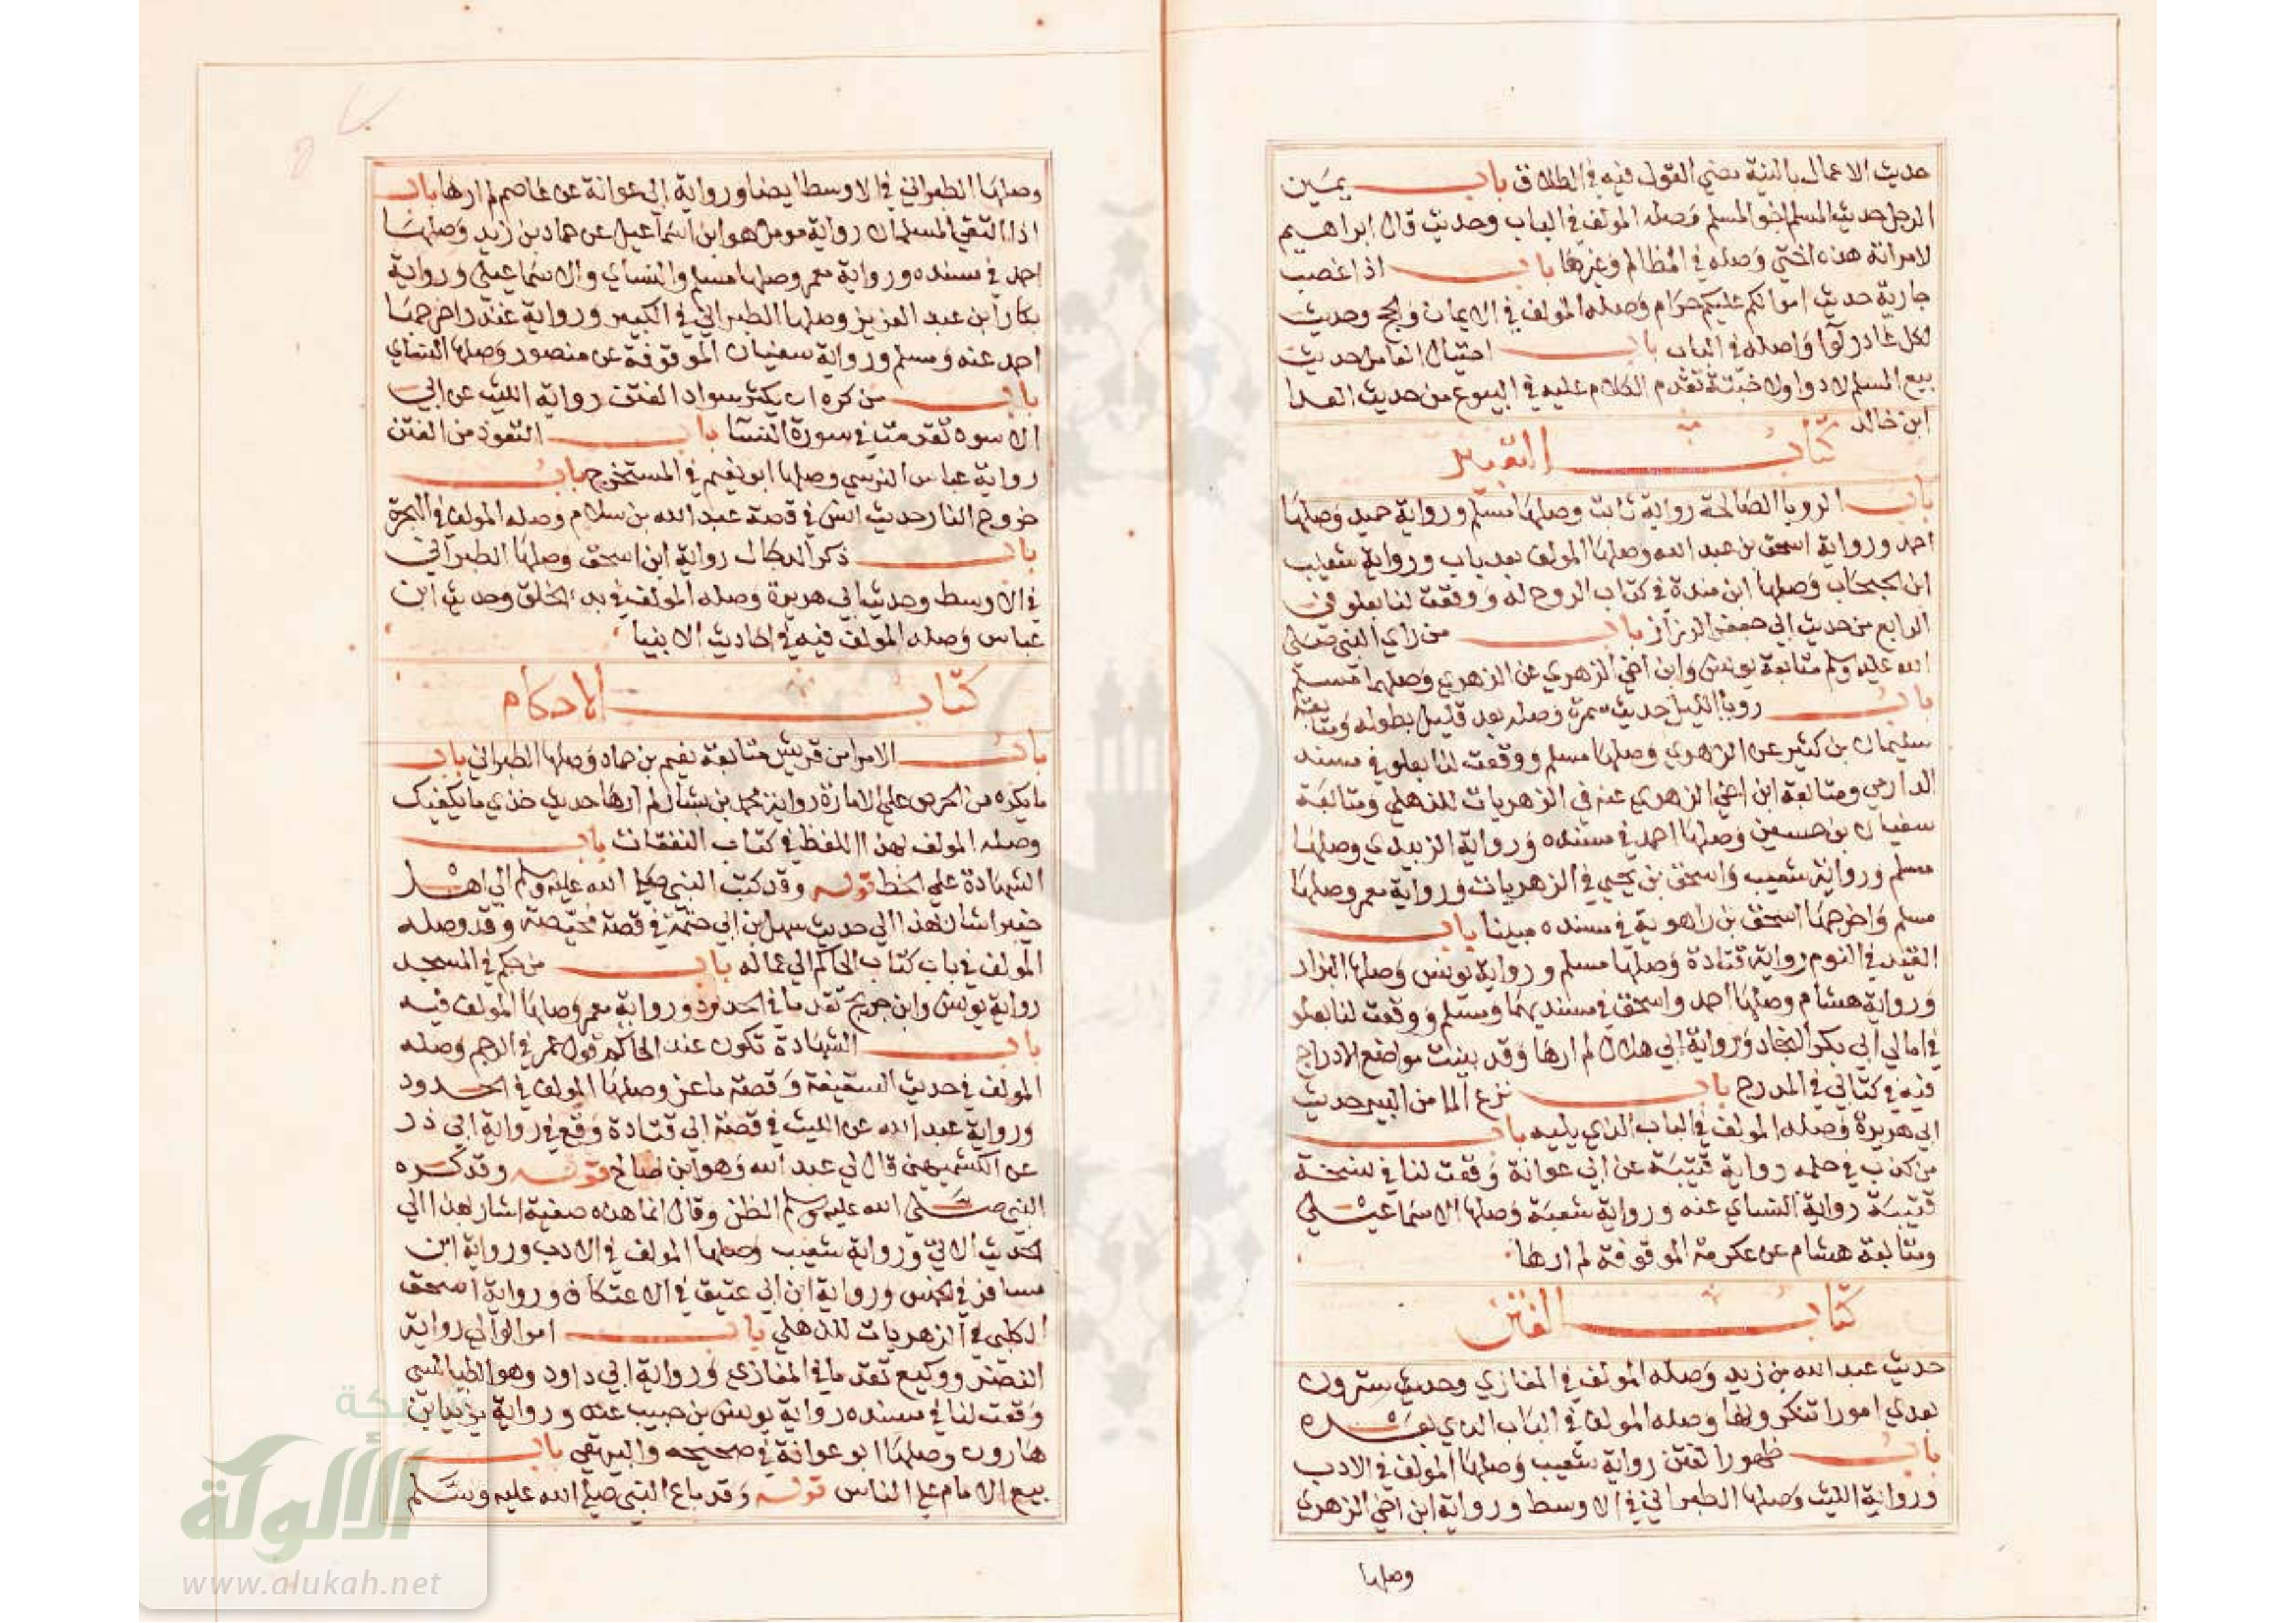 حديث الاعمال بالنية مضى القول فيه في الطلاق باب يمين
الرجل حديث المسلم اخو المسلم وصله المولف في الباب وحديث قال ابراهيم
لامراته هذه اختي وصله في المظالم وغيرها باب اذا غصب
جارية حديث اموالكم عليكم حرام وصله المولف في الايمان والحج وحديث
لكل غادر لوا وصله في الباب باب احتيال العامل حديث
بيع المسلم لا دوا ولا خبثة تقدم الكلام عليه في البيوع من حديث العدا
ابن خالد
كتاب التعبير
باب الرويا الصالحة رواية ثابت وصلها مسلم ورواية حميد وصلها
احمد ورواية اسحق بن عبد الله وصلها المولف بعد باب ورواية شعيب
ابن الحبحاب وصلها ابن مندة في كتاب الروح له ووقعت لنا بعلو في
الرابع من حديث ابي جعفر الرزاز باب من راي النبي صلى
الله عليه وسلم متابعة يونس وابن اخي الزهري عن الزهري وصلهما مسلم
باب رويا الليل حديث سمرة وصله بعد قليل بطوله ومتابعة
سليمان بن كثير عن الزهري وصلها مسلم ووقعت لنا بعلو في مسند
الدارمي ومتابعة ابن اخي الزهري عنه في الزهريات للذهلي ومتابعة
سفيان بن حسين وصلها احمد في مسنده ورواية الزبيدي وصلها
مسلم ورواية شعيب واسحق بن يحيى في الزهريات ورواية معمر وصلها
مسلم واخرجها اسحق بن راهوية في مسنده مبينا باب
القيد في النوم رواية قتادة وصلها مسلم ورواية يونس وصلها البزار
ورواية هشام وصلها احمد واسحق في مسنديهما ومسلم ووقعت لنا بعلو
في امالي ابي بكر النجاد ورواية ابي هلال لم ارها وقد بينت مواضع الادراج
فيه في كتابي في المدرج باب نزع الما من البير حديث
ابي هريرة وصله المولف في الباب الذي يليه باب
من كذب في حلمه رواية قتيبة عن ابي عوانة وقعت لنا في نسخة
قتيبة رواية النساي عنه ورواية شعبة وصلها الاسماعيلي
ومتابعة هشام عن عكرمة الموقوفة لم ارها
كتاب الفتن
حديث عبد الله بن زيد وصله المولف في المغازي وحديث سترون
بعدي امورا تنكرونها وصله المولف في الباب الذي بعده
باب ظهور الفتن رواية شعيب وصلها المولف في الادب
ورواية الليث وصلها الطبراني في الاوسط ورواية ابن اخي الزهري
وصلها
وصلها الطبراني في الاوسط ايضا ورواية ابي عوانة عن عاصم لم ارها باب
اذا التقى المسلمان رواية مومل هو ابن اسماعيل عن حماد بن زيد وصلها
احمد في مسنده ورواية معمر وصلها مسلم والنساي والاسماعيلي ورواية
بكار ابن عبد العزيز وصلها الطبراني في الكبير ورواية غندر اخرجها
احمد عنه ومسلم ورواية سفيان الموقوفة عن منصور وصلها النساي
باب من كره ان يكثر سواد الفتن رواية الليث عن ابي
الاسود تقدمت في سورة النسا باب التعوذ من الفتن
رواية عباس النرسي وصلها ابو نعيم في المستخرج باب
خروج النار حديث انس في قصة عبد الله بن سلام وصله المولف في الهجرة
باب ذكر الدجال رواية ابن اسحق وصلها الطبراني
في الاوسط وحديث ابي هريرة وصله المولف في بدء الخلق وحديث ابن
عباس وصله المولف فيه في احاديث الانبيا
كتاب الاحكام
باب الامرا من قريش متابعة نعيم بن حماد وصلها الطبراني باب
ما يكره من الحرص على الامارة رواية محمد بن بشار لم ارها حديث خذي ما يكفيك
وصله المولف بهذا اللفظ في كتاب النفقات باب
الشهادة على الخط قوله وقد كتب النبي صلى الله عليه وسلم الى اهل
خيبر اشار بهذا الى حديث سهل بن ابي حثمة في قصة محيصة وقد وصله
المولف في باب كتاب الحاكم الى عماله باب من حكم في المسجد
رواية يونس وابن جريج تقدما في الحدود ورواية معمر وصلها المولف فيه
باب الشهادة تكون عند الحاكم قول عمر في الرجم وصله
المولف في حديث السقيفة وقصة ماعز وصلها المولف في الحدود
ورواية عبد الله عن الليث في قصة ابي قتادة وقع في رواية ابي ذر
عن الكشميهني قال لي عبد الله وهو ابن صالح قوله وقد كره
النبي صلى الله عليه وسلم الظن وقال انما هذه صفية اشار بهذا الى
الحديث الاتي ورواية شعيب وصلها المولف في الادب ورواية ابن
مسافر في الخمس ورواية ابن ابي عتيق في الاعتكاف ورواية اسحق
الكلبي في الزهريات للذهلي باب امر الوالي رواية
النضر ووكيع تقدما في المغازي ورواية ابي داود وهو الطيالسي
وقعت لنا في مسنده رواية يونس بن حبيب عنه ورواية يزيد بن
هارون وصلها ابو عوانة في صحيحه والبيهقي باب
بيع الامام على الناس قوله وقد باع النبي صلى الله عليه وسلم
شبكة
الألوكة
www.alukah.net